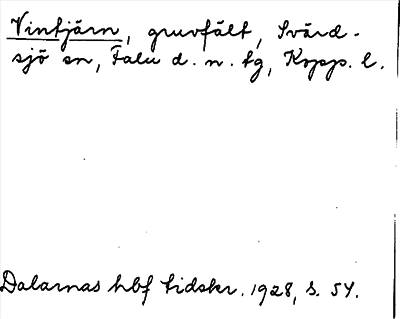 Vintjärn, gruvfält, Svärd-
sjö sn, Falu d. n. tg, Kopp. l.
Dalarnas hbf tidskr. 1928, s. 54.